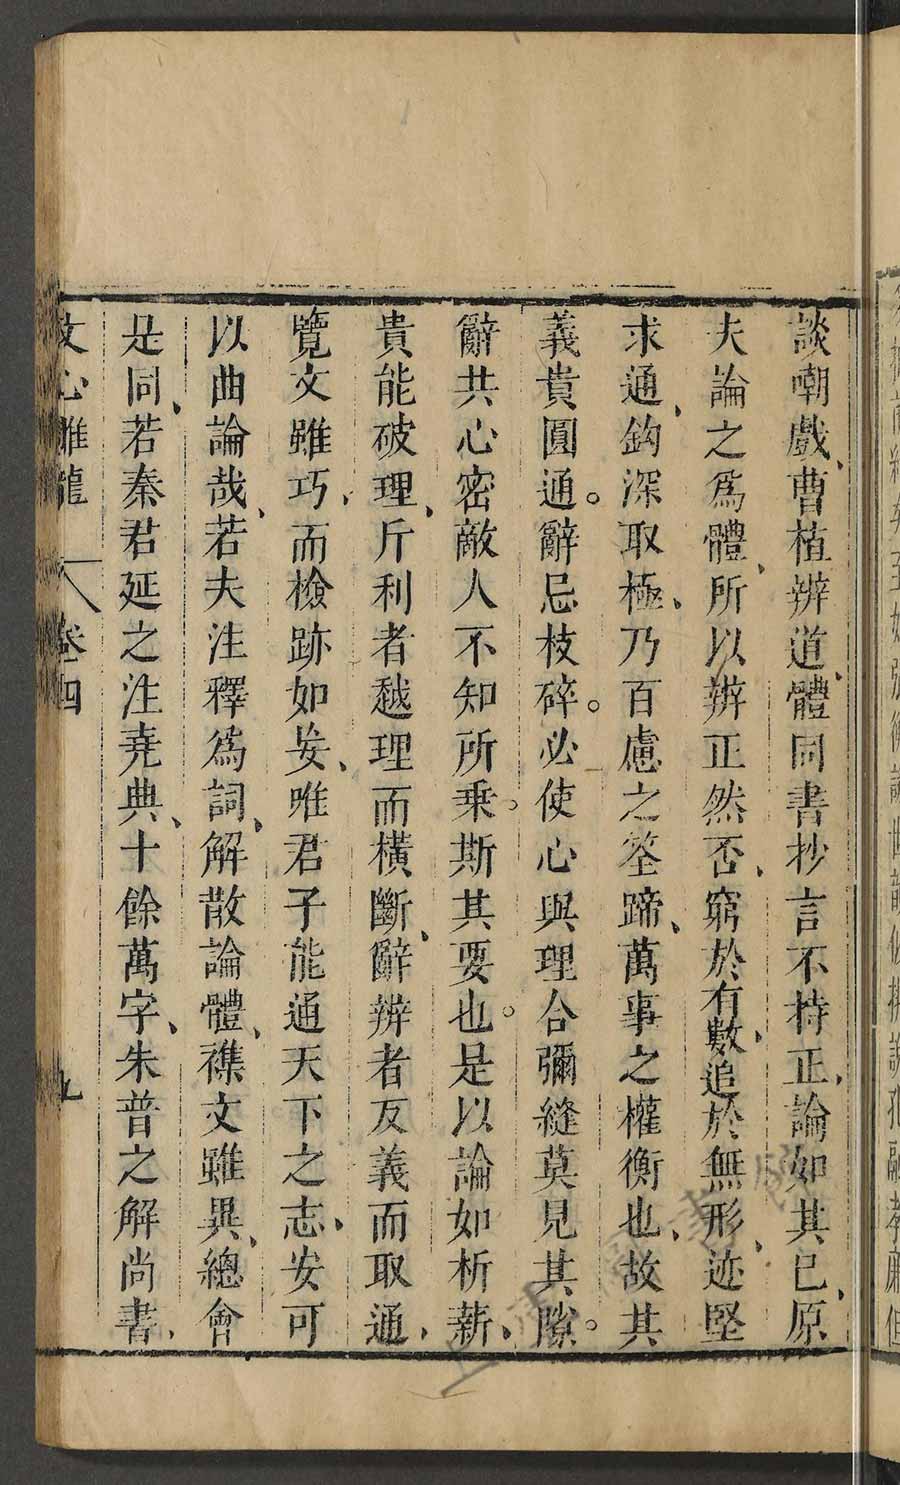 談嘲戲、曹植辨道、體同書抄言不持正、論如其已、原
夫論之爲體、所以辨正然否、窮於有數、追於無形、迹堅
求通、鈎深取極、乃百慮之筌蹄、萬事之權衡也、故其
義貴圓通。辭忌枝碎。必使心與理合彌縫莫見其隙。
辭共心密敵人不知所乗。斯其要也。是以論如析薪、
貴能破理、斤利者越理而橫斷、辭辨者反義而取通、
覽文雖巧、而檢跡如妄、唯君子能通天下之志、安可
以曲論哉、若夫注釋爲詞、解散論體、襍文雖異、總會
是同、若秦君延之注堯典、十餘萬字、朱普之解尚書、
文心雕龍 卷四 九